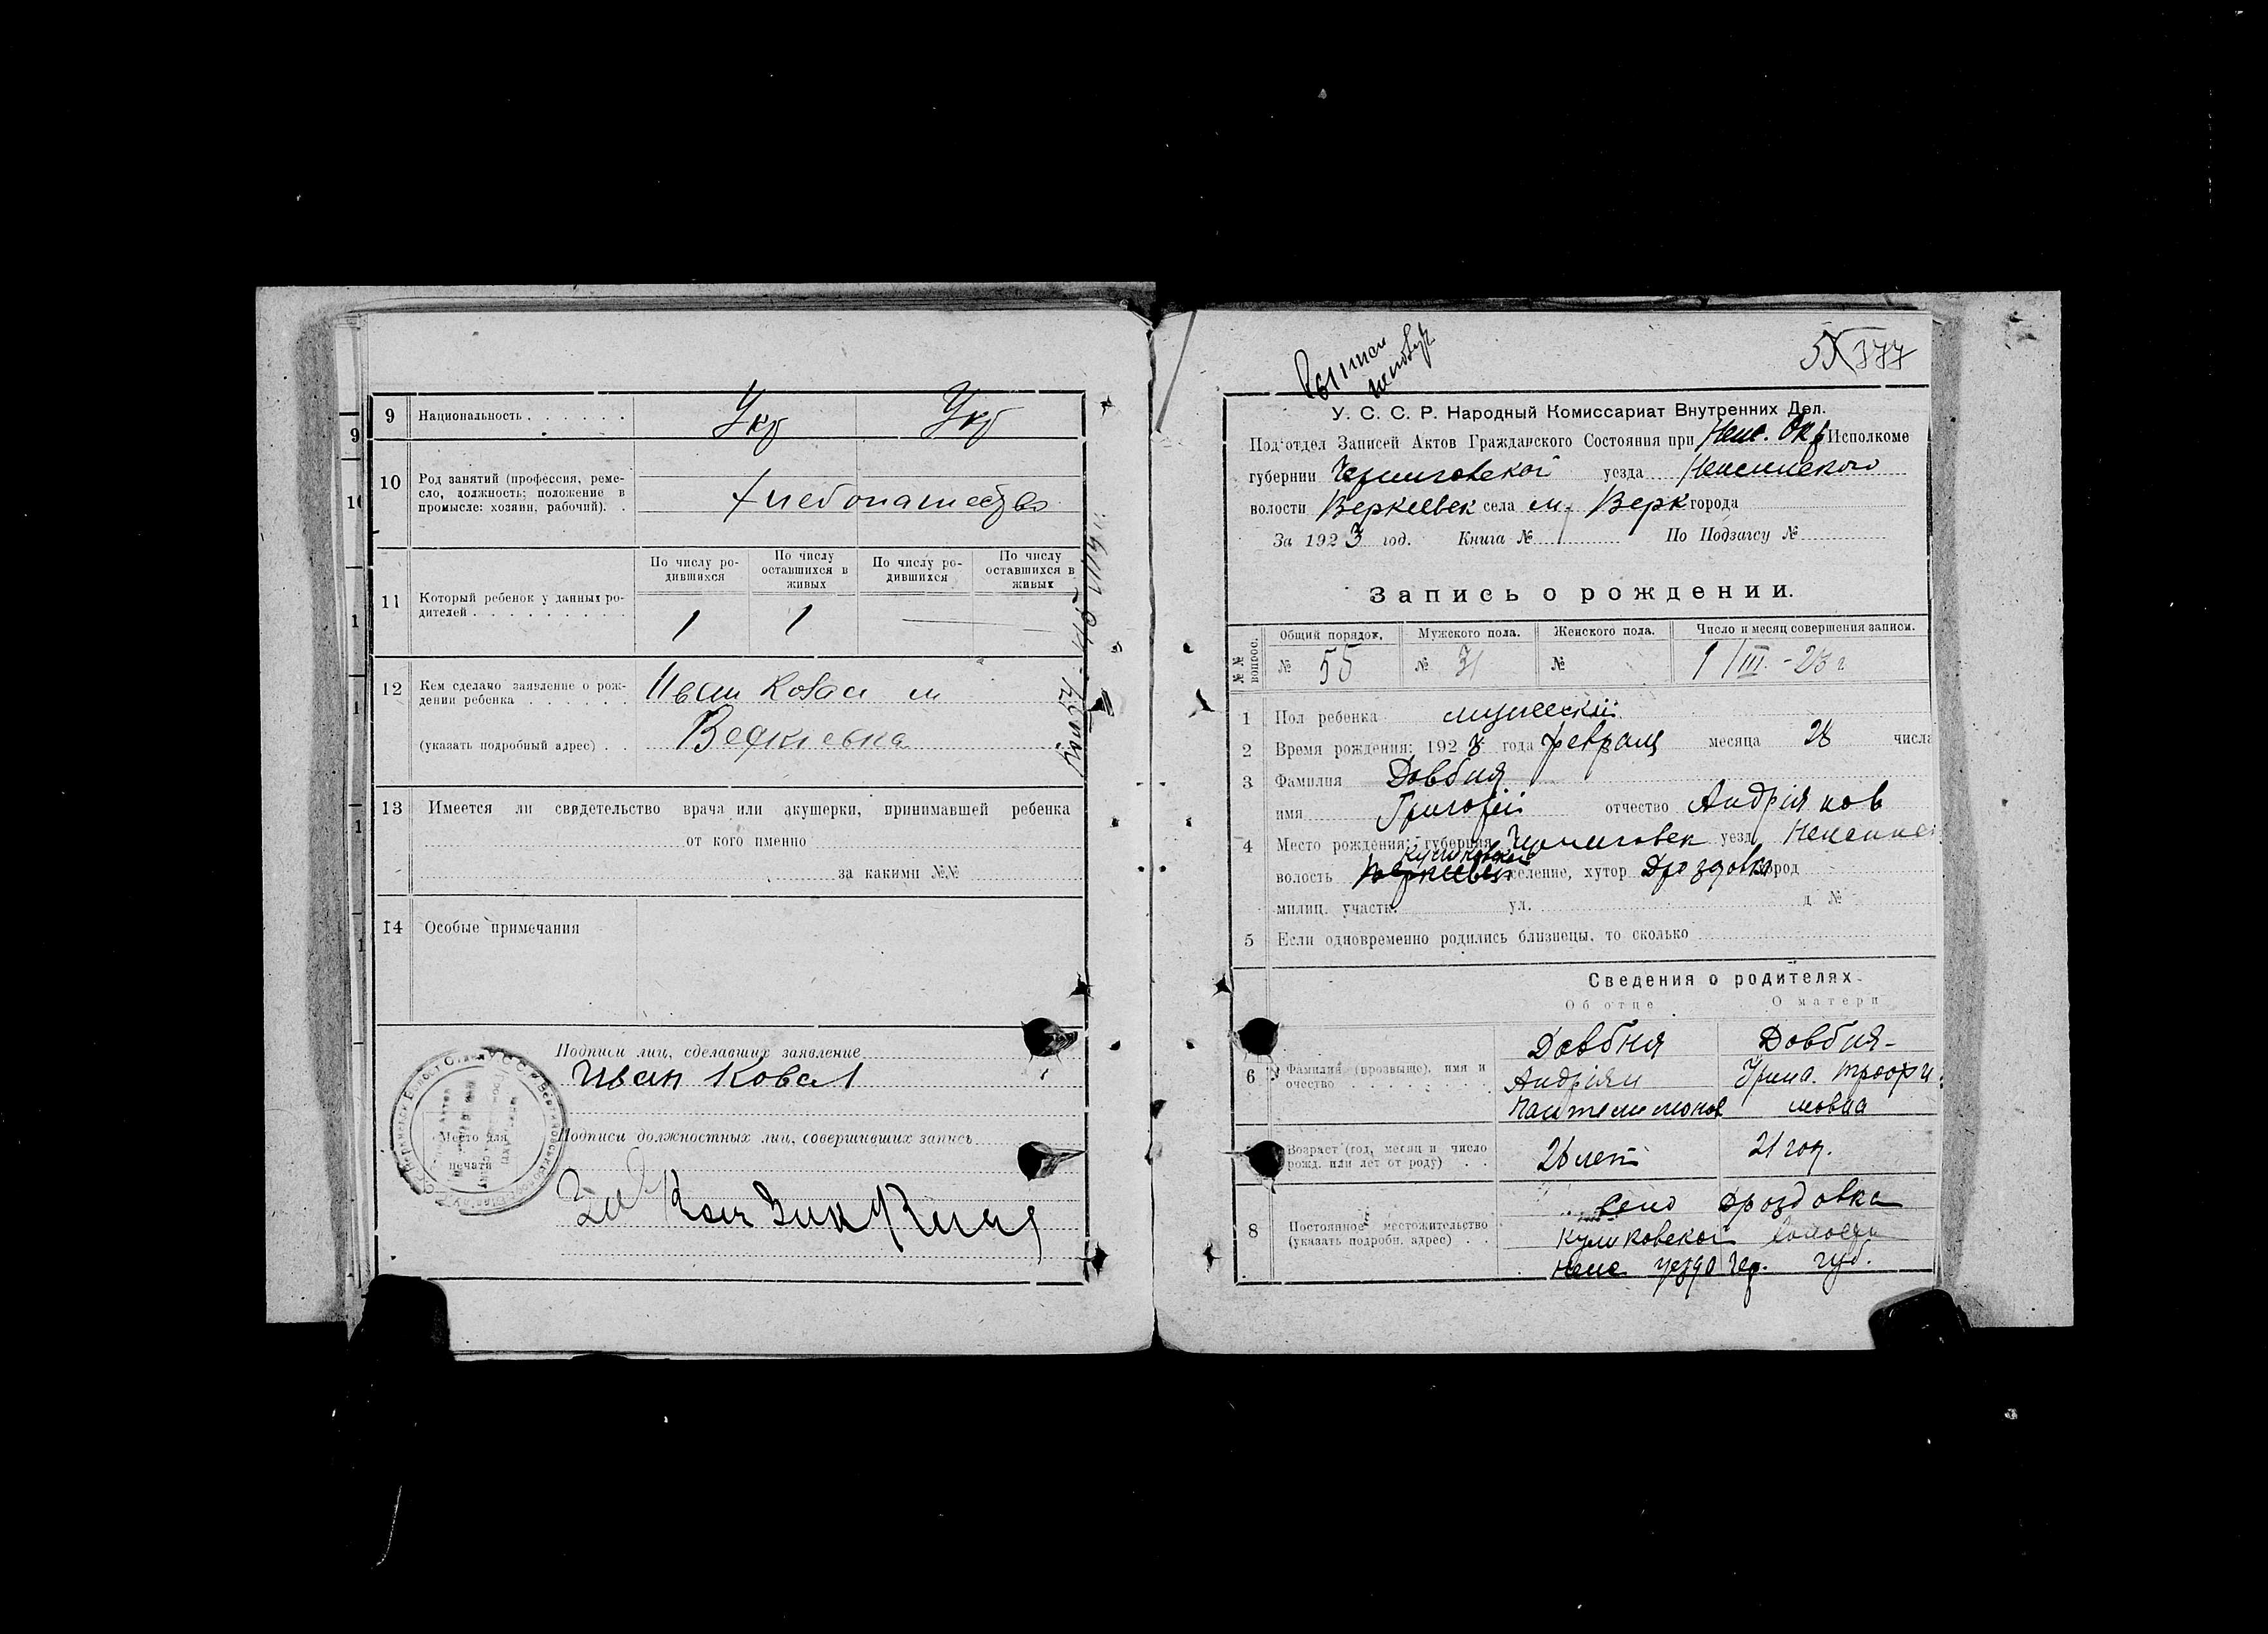 9 Национальность . . . . . . Укр Укр
10 Род занятий (профессия, реме-
сло, должность; положение в
промысле: хозяин, рабочий). .
хлебопашество
По числу ро-
дившихся
По числу
оставшихся в
живых
По числу ро-
дившихся
По числу
оставшихся в
живых
11 Который ребенок у данных ро-
дителей . . . . . . . . . .
1 1
12 Кем сделано заявление о рож-
дении ребенка . . . . . .
Иван Ковал м
(указать подробный адрес) . .
Веркиевка
13 Имеется ли свидетельство врача или акушерки, принимавшей ребенка
от кого именно
за какими №№
14 Особые примечания
Подписи лиц, сделавших заявление
Иван Ковал
Место для
печати
Подписи должностных лиц, совершивших запись
377
У. С. С. Р. Народный Комиссариат Внутренних Дел.
Под'отдел Записей Актов Гражданского Состояния при Неж. Окр Исполкоме
губернии Черниговской уезда Неженского
волости Веркиевск села м. Верк города
За 1923 год. Книга № По Подзагсу №
Запись о рождении.
№№ вопрос.
Общий порядок. Мужского пола. Женского пола. Число и месяц совершения записи.
№ 55 № 31 № 1/III.-23 г
1 Пол ребенка мужеский
2 Время рождения: 1923 года февраля месяца 28 числа
3 Фамилия Довбня
имя Григорій отчество Андріянов
4 Место рождения: губерния Черниговск уезд Неженск
Куликовской
волость Веркиевск селение, хутор Дроздовка город
милиц. участк. ул. д №
5 Если одновременно родились близнецы, то сколько
Сведения о родителях.
Об отце О матери
6 Фамилия (прозвыще), имя и
очество . . . . . . . .
Довбня Довбня-
Андріян Ирина. Трофи
Пантелимонов мовна
Возраст (год, месяц и число
рожд. или лет от роду) . .
26 лет 21 год.
8 Постоянное местожительство
(указать подробн. адрес) . .
село Дроздовка
Куликовской волости
Неже уезда Чер. губ.